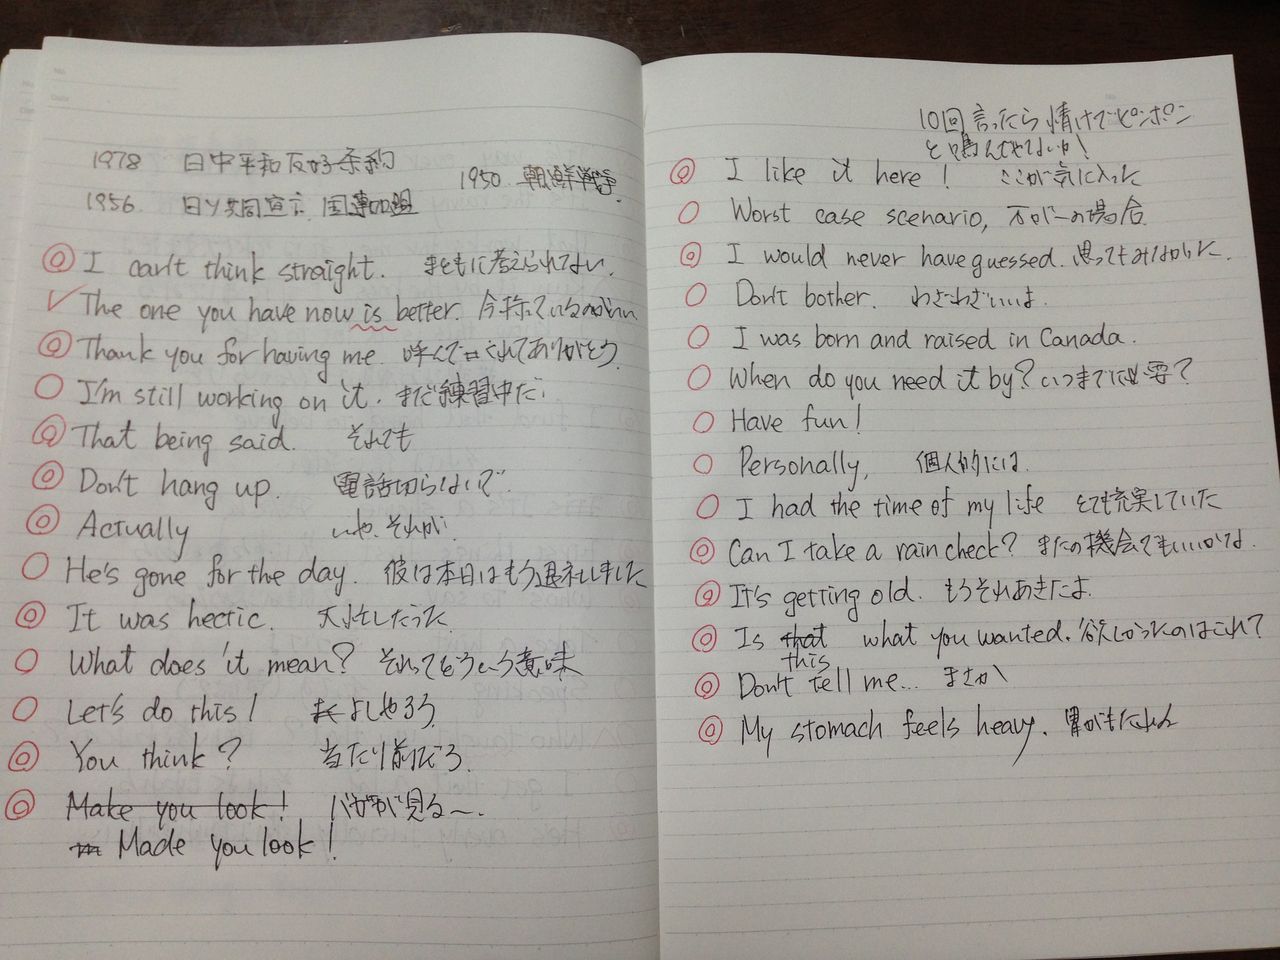 1978 日中平和友好条約
1950. 朝鮮戦争
1956. 日ソ共同宣言. 国連加盟
I can't think straight. まともに考えられてない.
The one you have now is better. 今持っているのがいい
Thank you for having me. 呼んでくれてありがとう.
I'm still working on it. まだ練習中だ.
That being said. それでも
Don't hang up. 電話切らないで.
Actually いや. それが.
He's gone for the day. 彼は本日はもう退社しました
It was hectic.
What does it mean? それってどういう意味
Let's do this! よしやろう.
You think? 当たり前だろ.
Make you look! バカが見る〜.
Made you look!
10回言ったら情けでピンポン
I like it here! ここが気に入った
Worst case scenario, 万が一の場合.
I would never have guessed. 思ってもみなかった.
Don't bother. わざわざいいよ.
I was born and raised in Canada.
When do you need it by? いつまでに必要?
Have fun!
Personally, 個人的には.
I had the time of my life とても充実していた
Can I take a rain check? またの機会でもいいかな.
It's getting old. もうそれあきたよ.
Is that what you wanted. 欲しかったのはこれ?
this
Don't tell me... まさか
My stomach feels heavy. 胃がもたれん